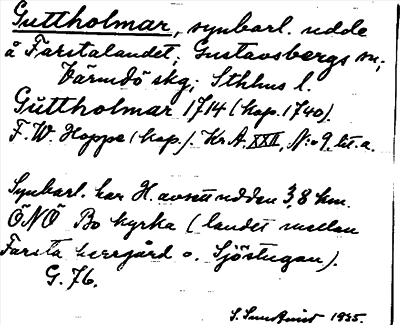 Guttholmar, synbarl. udde
å Farstalandet; Gustavsbergs sn;
Värmdö skg; Sthlms l.
Guttholmar 1714 (kop. 1740).
F. W. Hoppe (kop.). Kr. A. XXII, N:o 9. lit. a.
Synbarl. har H. avsett udden 3,8 km.
ÖNÖ Bo kyrka (landet mellan
Farsta herrgård o. Sjöstugan).
G. 76.
S. Sundquist 1935.